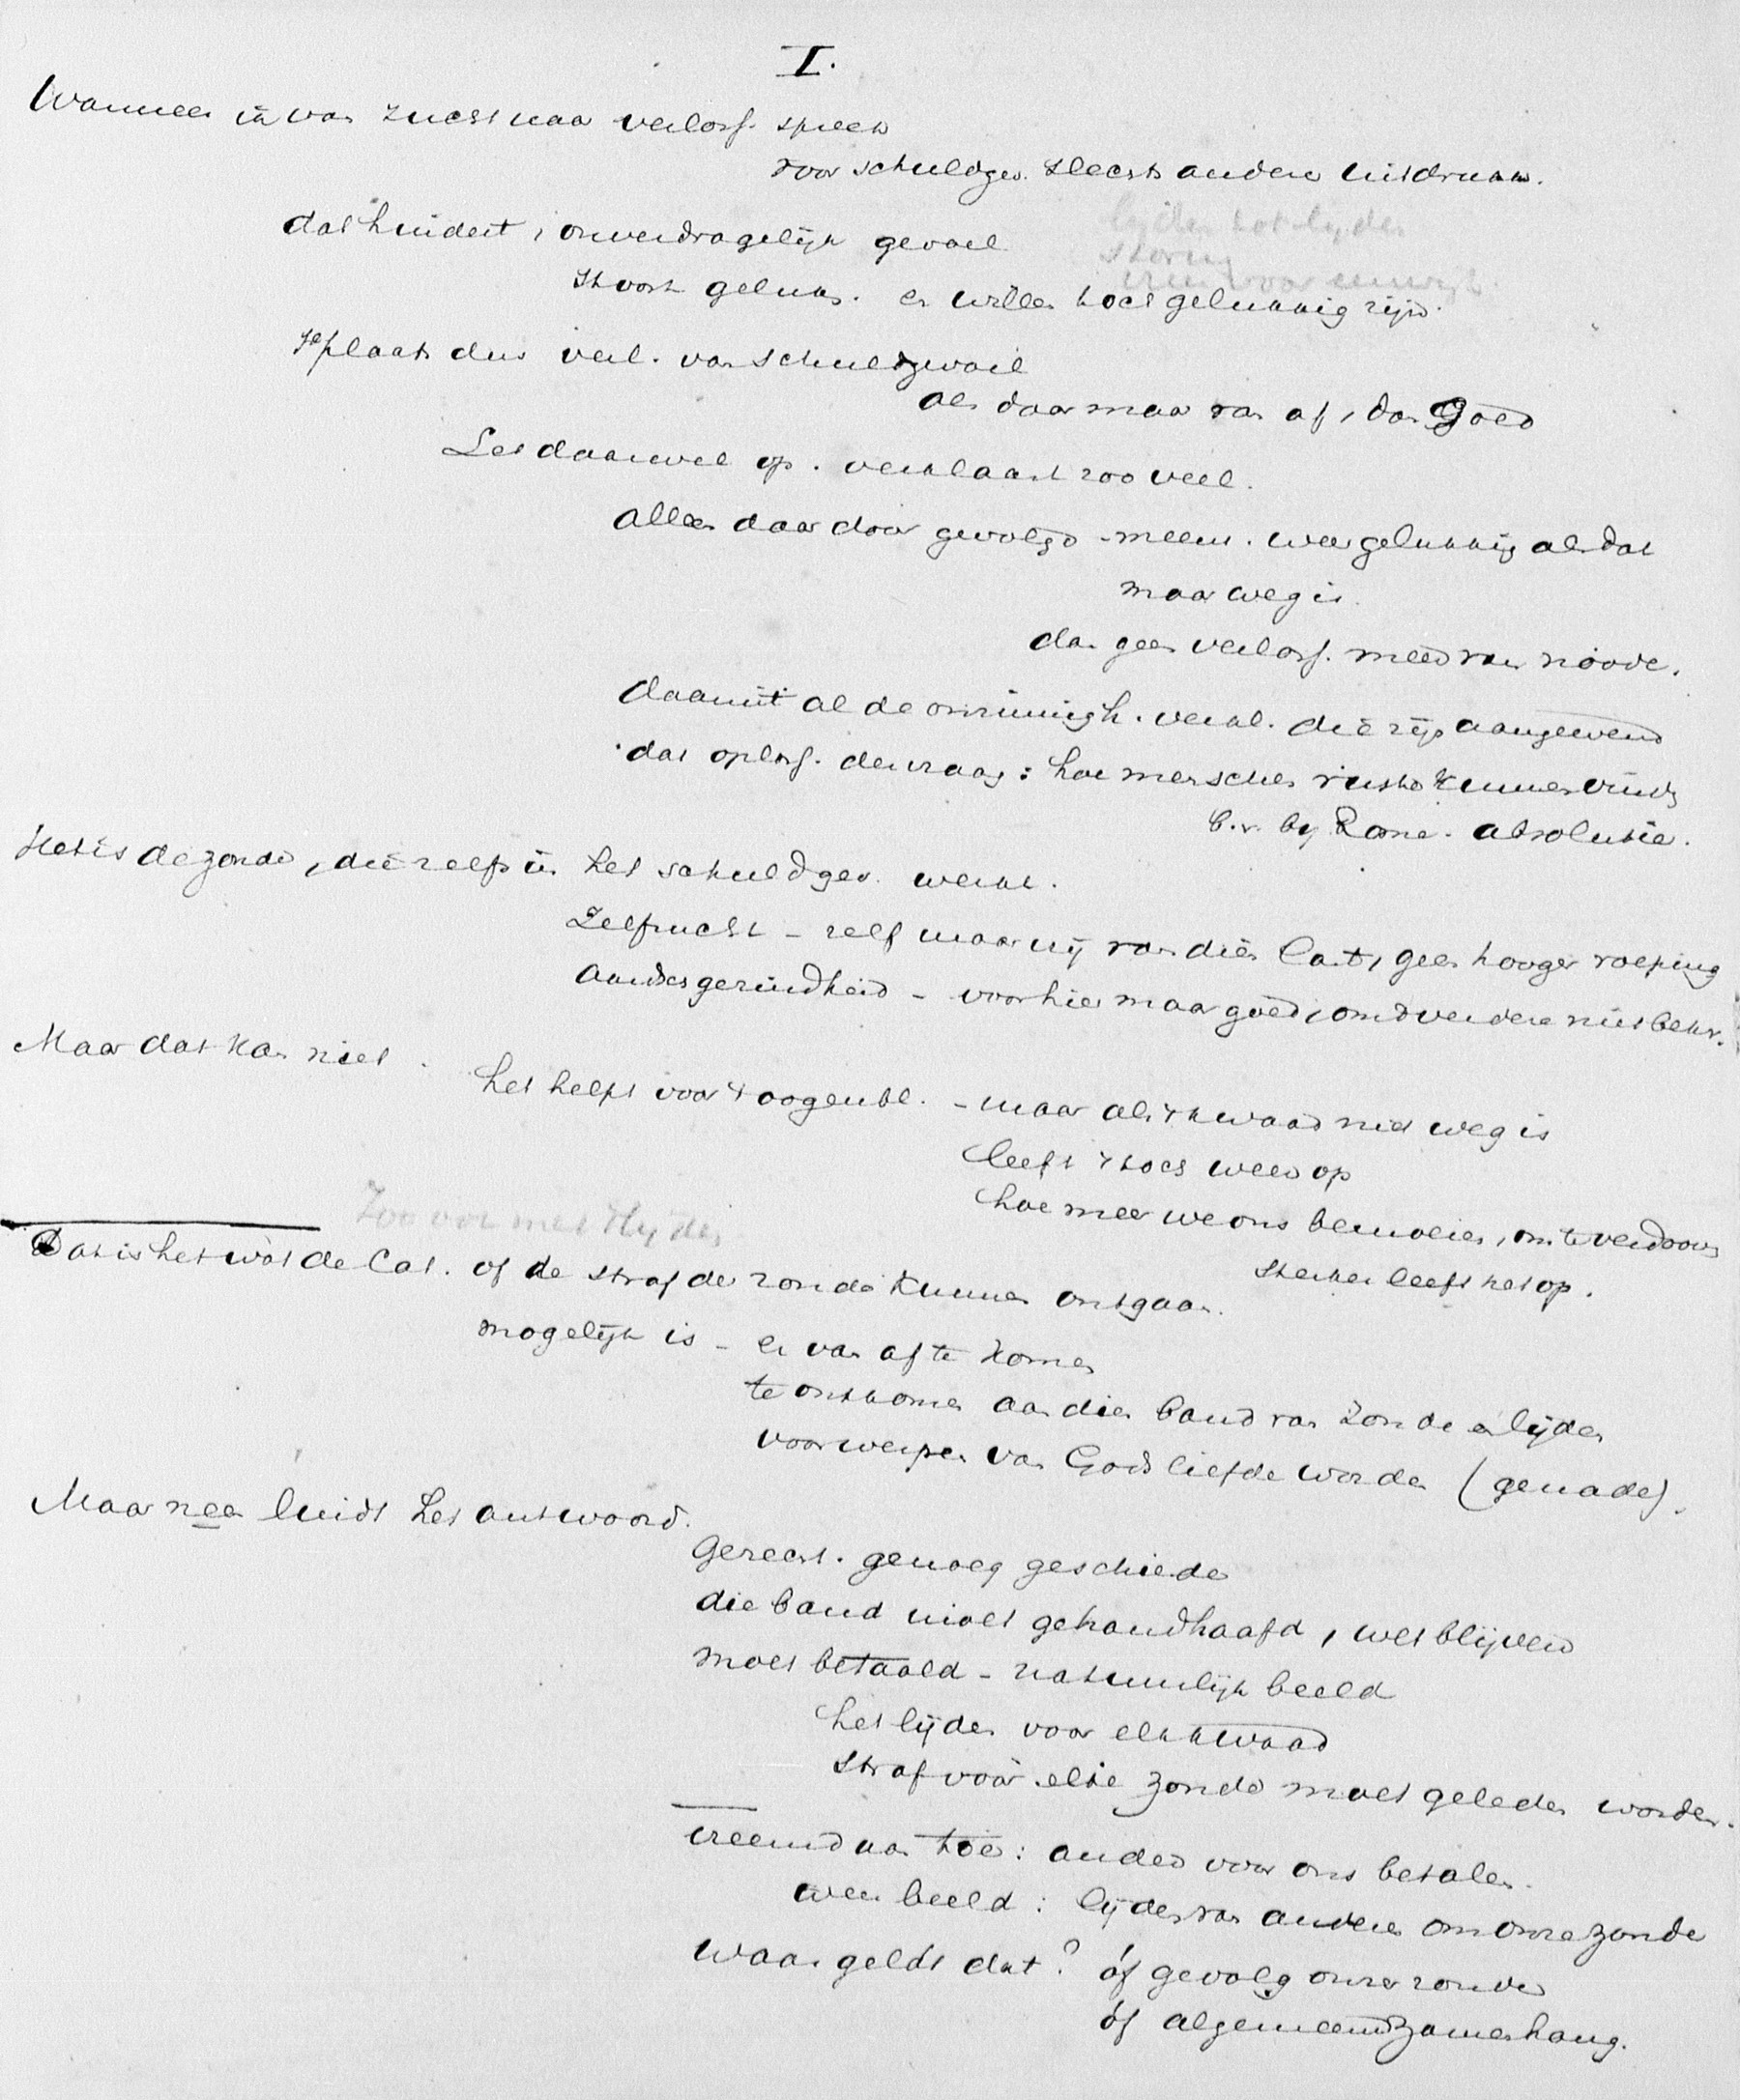 I.
Wanneer ik van zucht naar verloss. spreek
voor schuldgev. slechts andere uitdrukk.
lijden tot lijden
dat hindert, onverdragelijk gevoel
storing
stoort geluk. en willen toch gelukkig zijn.
plaats dus verl. van schuldgevoel
als daar maar van af, dan goed
Let daar wel op. verklaart zoo veel.
Alleen daardoor gevolgd - meent. weer gelukkig als dat
maar weg is.
dan geen verloss. meer van noode.
daaruit al de onzinnigh. verkl. die zijn aangewend
dat oploss. der vraag: hoe menschen rust kunnen vinden
b.v. by Rome. absolutie.
Het is de zonde, die zelfs in het schuldgev. werkt.
Zelfzucht - zelf maar vrij van dien last, geen hooger roeping
aardsgezindheid - voor hier maar goed, om verdere niet bekr.
Maar dat kan niet.
het helpt voor 't oogenbl. - maar als 't kwaad niet weg is
leeft 't toch weer op
hoe meer we ons bemoeien, om te verdooven
sterker leeft het op.
Zoo voor met lijden
Dat is het wat de Cat. of de straf der zonde kunnen ontgaan.
mogelijk is - er van af te komen
te ontkomen aan dien band van zonde en lijden
voorwerpen van Gods liefde worden (genade).
Maar neen luidt het antwoord.
Gerecht. genoeg geschiede
die band moet gehandhaafd, wet blijvend
moet betaald - natuurlijk beeld
het lijden voor elk kwaad
straf voor elke zonde moet geleden worden.
vreemd aan toe: ander voor ons betalen.
weer beeld: lijden van anderen om onze zonde
Waar geldt dat? óf gevolg onzer zonden
óf algemeene zamenhang.